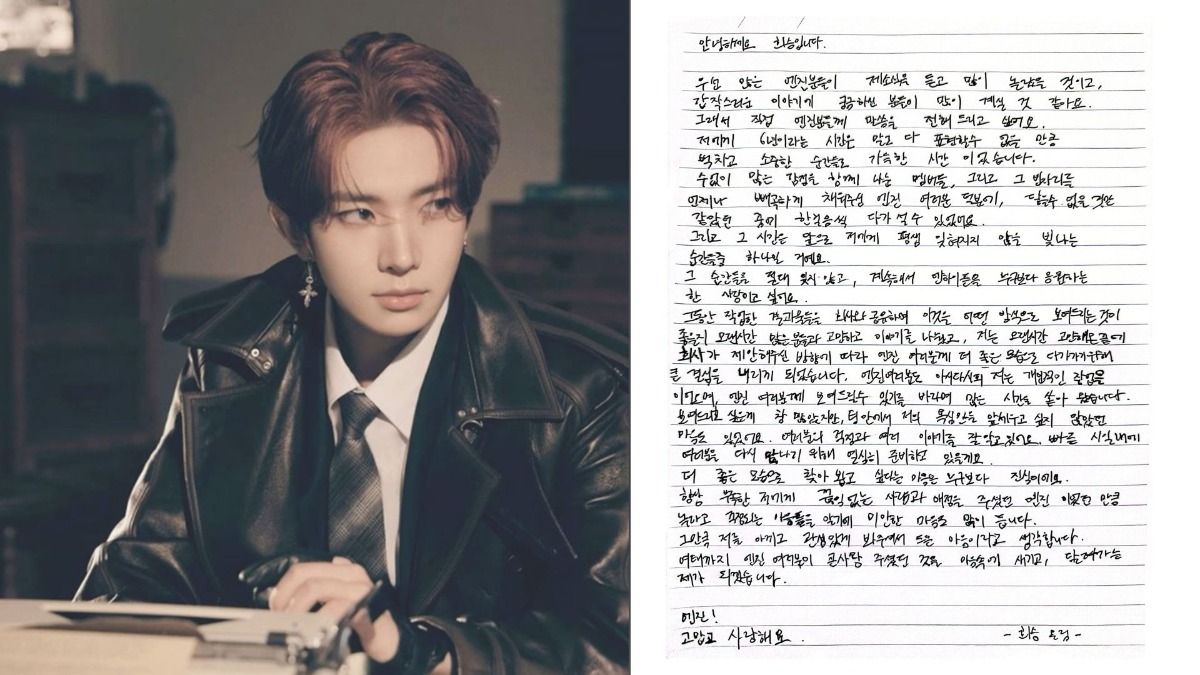 안녕하세요 희승입니다.
우선 많은 엔진분들이 제소식을 듣고 많이 놀랐을 것이고,
갑작스러운 이야기에 궁금하신 분들이 많이 계실 것 같아요.
그래서 직접 엔진분들께 말씀을 전해 드리고 싶어요.
저에게 6년이라는 시간은 말로 다 표현할수 없을 만큼
벅차고 소중한 순간들로 가득한 시간 이었습니다.
수없이 많은 감정을 함께 나눈 멤버들, 그리고 그 빈자리를
언제나 빼곡하게 채워주신 엔진 여러분 덕분에, 닿을수 없을 것만
같았던 꿈에 한걸음씩 다가 설 수 있었어요.
그리고 그 시간은 앞으로 저에게 평생 잊혀지지 않을 빛나는
순간들중 하나일 거에요.
그 순간들을 절대 잊지 않고, 계속해서 엔하이픈을 누구보다 응원하는
한 사람이고 싶어요.
그동안 작업한 결과물들을 회사와 공유하며 이것을 어떤 방식으로 보여드리는 것이
좋을지 오랜시간 많은분들과 고민하고 이야기를 나눴고, 저는 오랜시간 고민해온 끝에
회사가 제안해주신 방향에 따라 엔진 여러분께 더 좋은 모습으로 다가가기위해
큰 결심을 내리게 되었습니다. 엔진여러분도 아시다시피 저는 개인적인 작업을
이어오며, 엔진 여러분께 보여드릴수 있기를 바라며 많은 시간을 쏟아 왔습니다.
보여드리고 싶은게 참 많았지만, 팀 안에서 저의 욕심만을 앞세우고 싶지 않았던
마음도 있었어요. 여러분의 걱정과 여러 이야기를 잘 알고있어요. 빠른 시일내에
여러분을 다시 만나기 위해 열심히 준비하고 있을게요.
더 좋은 모습으로 찾아 뵙고 싶다는 마음은 누구보다 진심이에요.
항상 부족한 저에게 끊임 없는 사랑과 애정을 주셨던 엔진 이었던 만큼
놀라고 걱정되는 마음들을 알기에 미안한 마음도 많이 듭니다.
그만큼 저를 아끼고 관심있게 봐주셔서 드는 마음이라고 생각합니다.
여태까지 엔진 여러분이 큰사랑 주셨던 것을 마음속에 새기고, 달려가는
제가 되겠습니다.
엔진!
고맙고 사랑해요.
- 희승 올림 -